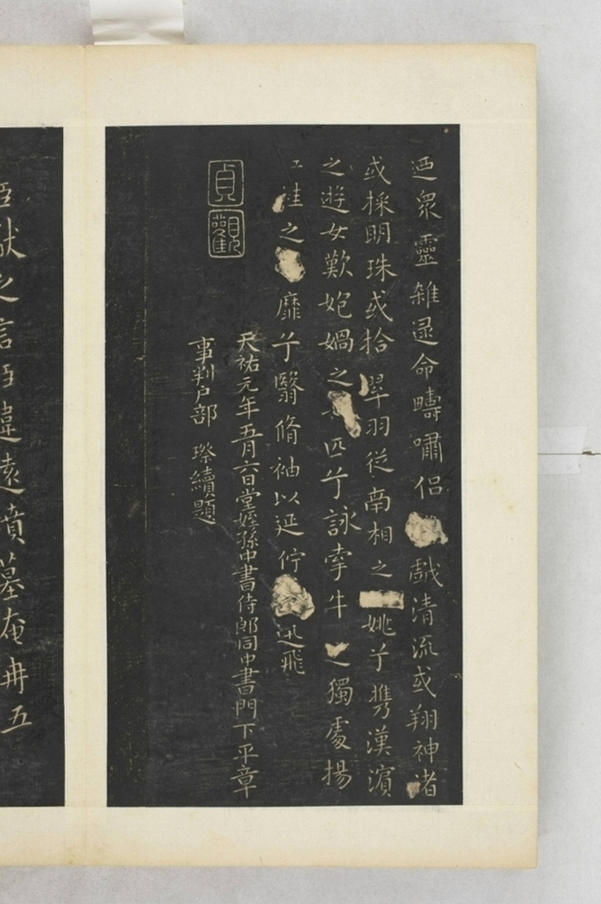 迺眾靈雜遝命疇嘯侶戲清流或翔神渚
或採明珠或拾翠羽從南相之姚兮攜漢濱
之遊女歎媧之匹兮詠牽牛之獨處揚
袿之靡兮翳脩袖以延佇迅飛
貞觀
天祐元年五月六日堂姪孫中書侍郎同中書門下平章
事判戶部 璨續題
臣獻之言臣違遠墳墓奄冉五